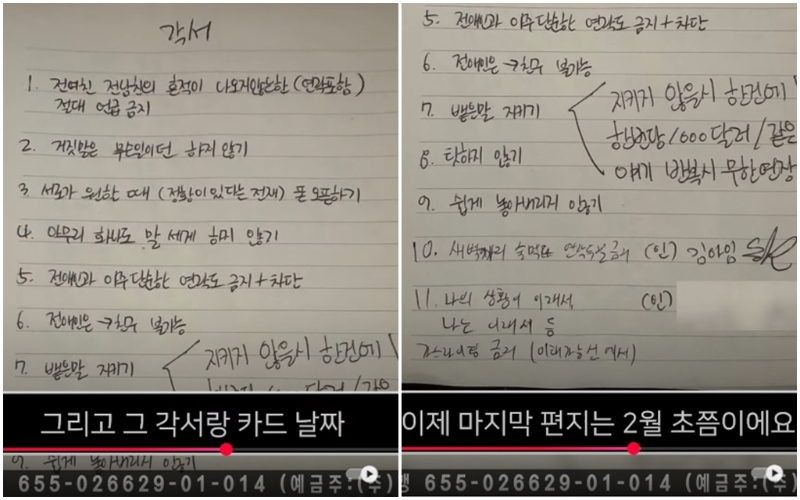 각서
1. 전여친 전남친의 흔적이 나오지않는한 (연락포함)
절대 언급 금지
2. 거짓말은 무슨일이던 하지 않기
3. 서로가 원한 때 (정황이 있다는 전제) 폰 오픈하기
4. 아무리 화나도 말 세게 하지 않기
5. 전애인과 아주 단순한 연락도 금지 + 차단
6. 전애인은 → 친구 불가능
7. 뱉은말 지키기
지키지 않을시 한건에
그리고 그 각서랑 카드 날짜
9. 쉽게 놓아버리지 않기
655-026629-01-014 (예금주:(주)
5. 전애인과 아주 단순한 연락도 금지 + 차단
6. 전애인은 → 친구 불가능
7. 뱉은말 지키기
지키지 않을시 한건에
1000달러 / 같은
얘기 반복시 무한연장
8. 탓하지 않기
9. 쉽게 놓아버리지 않기
10. 술먹고 (인) 김아임
11. 나의 상황이 이래서 (인)
나는 이래서 등
금지
이제 마지막 편지는 2월 초쯤이에요
655-026629-01-014 (예금주:(주)